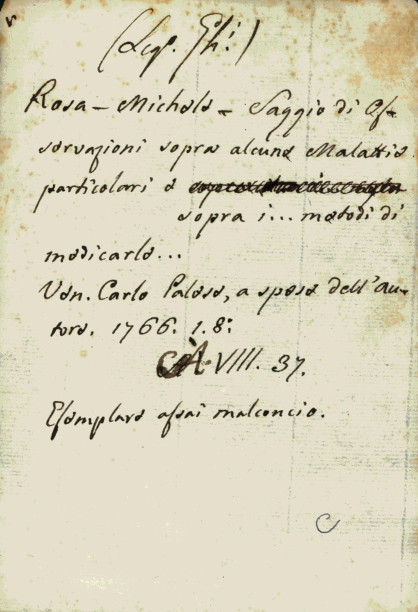 (Leg. Ghi:)
Rosa = Michele = Saggio di Os=
servazioni sopra alcune Malattie
particolari e
sopra i... metodi di
medicarle...
Ven. Carlo Palese, a spese dell'Au=
tore. 1766. 1. 8:
A. VIII. 37.
Esemplare assai malconcio.
C